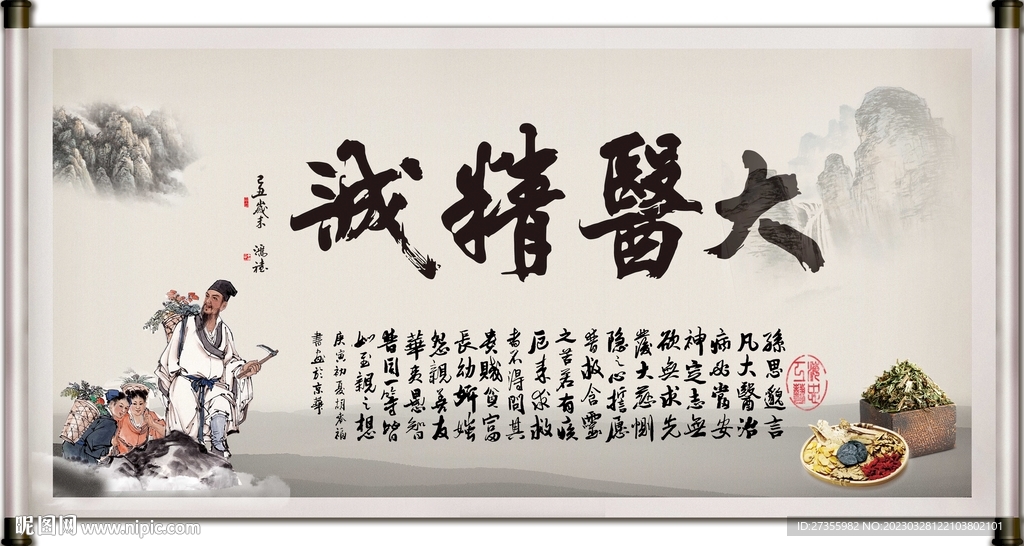 大醫精誠
孫思邈言
凡大醫治
病必當安
神定志無
欲無求先
發大慈惻
隐之心誓愿
普救含靈
之苦若有疾
厄来求救
者不得問其
貴賤貧富
長幼妍媸
怨親善友
華夷愚智
普同一等皆
如至親之想
庚寅初夏
書於京華
丑歲末
昵图网 www.nipic.com
ID:27355982 NO:20230328122103802101